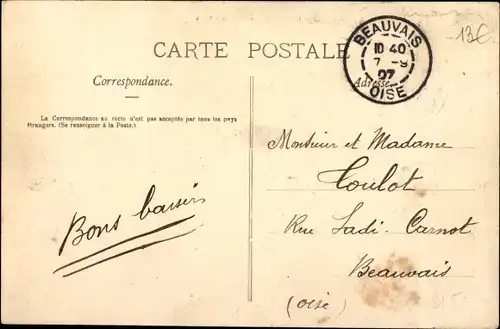 CARTE POSTALE
Correspondance.
La Correspondance au recto n'est pas acceptée par tous les pays
étrangers. (Se renseigner à la Poste.)
Bons baisers
BEAUVAIS
10 40
7 -9
07
OISE
Adresse
13€
Monsieur et Madame
Toulot
Rue Sadi-Carnot
Beauvais
(Oise)